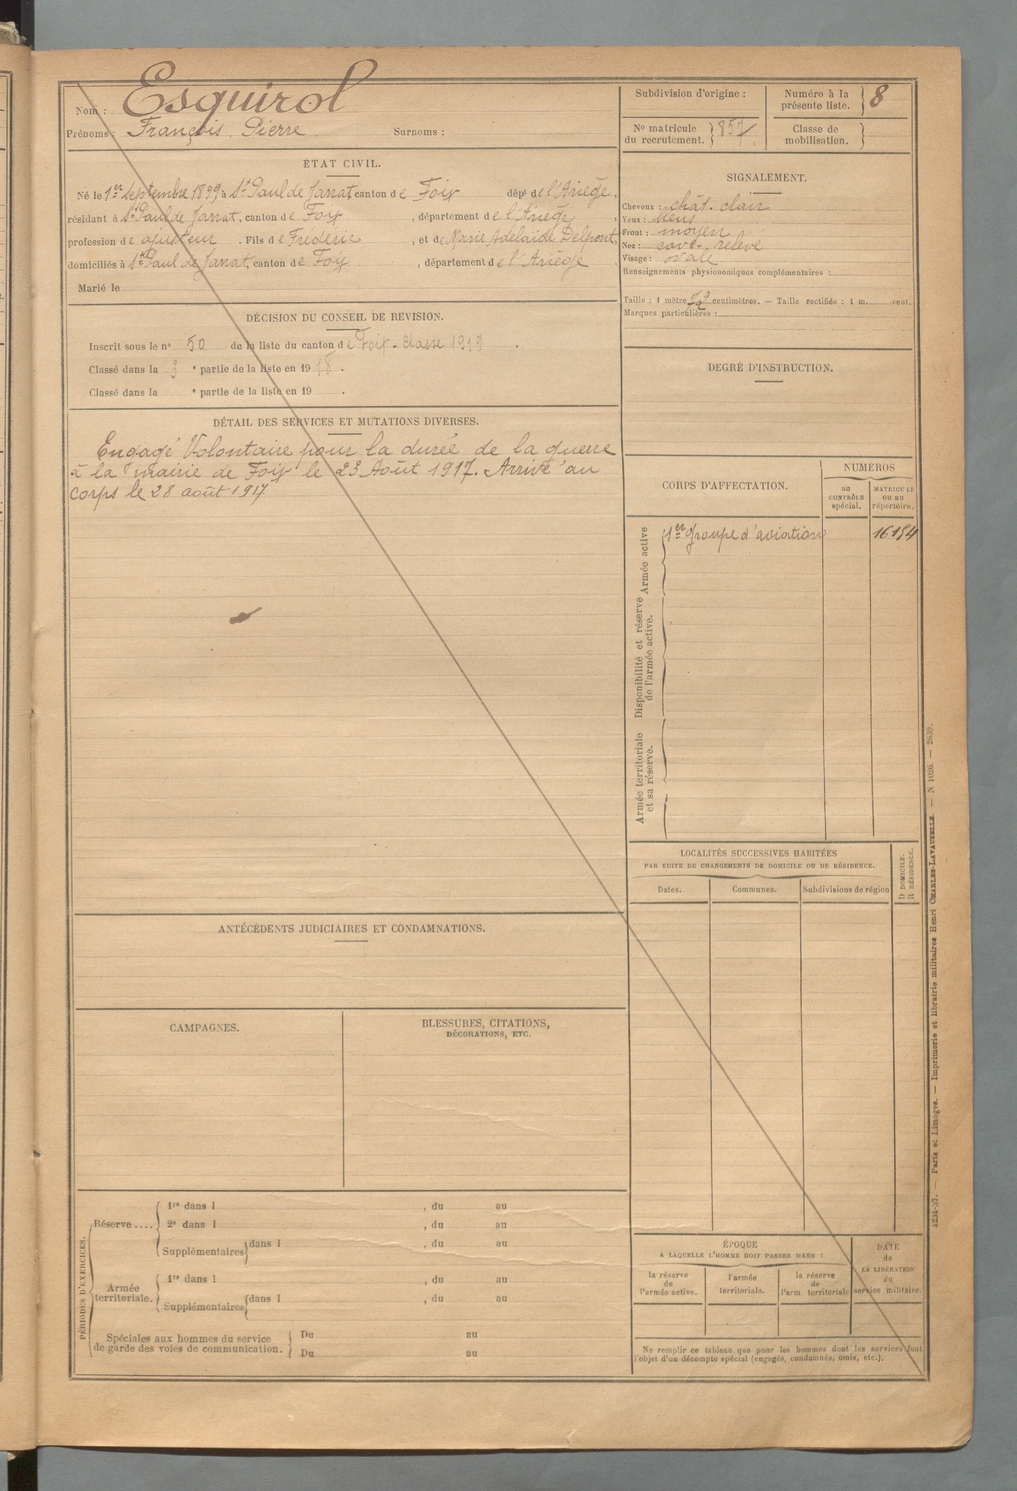 Nom : Esquirol
Prénoms : François Pierre Surnoms :
Subdivision d'origine :
Numéro à la présente liste. 8
No matricule du recrutement. 857
Classe de mobilisation.
ETAT CIVIL.
Né le 1er Septembre 1899 à St Paul de Jarrat canton de Foix dépt de l'Ariège,
résidant à St Paul de Jarrat, canton de Foix , département de l'Ariège ,
profession de ajusteur . Fils de Frédéric , et de Marie Adelaïde Delpont,
domiciliés à St Paul de Jarrat, canton de Foix , département de l'Ariège
Marié le
SIGNALEMENT.
Cheveux : chât. clair
Yeux : bleus
Front : moyen
Nez : cave. relevé
Visage : ovale
Renseignements physionomiques complémentaires :
Taille : 1 mètre centimètres. — Taille rectifiée : 1 m. cent.
Marques particulières :
DÉCISION DU CONSEIL DE REVISION.
Inscrit sous le no 50 de la liste du canton de Foix - classe 1919 .
Classé dans la 3 e partie de la liste en 1918 .
Classé dans la e partie de la liste en 19 .
DEGRÉ D'INSTRUCTION.
DÉTAIL DES SERVICES ET MUTATIONS DIVERSES.
Engagé Volontaire pour la durée de la guerre
à la mairie de Foix le 23 Août 1917. Arrivé au
corps le 28 août 1917
CORPS D'AFFECTATION.
NUMÉROS
au CONTRÔLE spécial.
MATRICULE ou au répertoire.
Armée active
1er Groupe d'aviation 16154
Disponibilité et réserve de l'armée active.
Armée territoriale et sa réserve.
LOCALITÉS SUCCESSIVES HABITÉES
PAR SUITE DE CHANGEMENTS DE DOMICILE OU DE RÉSIDENCE.
Dates. Communes. Subdivisions de région
D DOMICILE.
R RÉSIDENCE.
ANTÉCÉDENTS JUDICIAIRES ET CONDAMNATIONS.
CAMPAGNES.
BLESSURES, CITATIONS,
DÉCORATIONS, ETC.
PÉRIODES D'EXERCICES.
Réserve ....
1re dans l , du au
2e dans l , du au
Supplémentaires dans l , du au
Armée territoriale.
1re dans l , du au
Supplémentaires dans l , du au
Spéciales aux hommes du service
de garde des voies de communication.
Du au
Du au
ÉPOQUE
A LAQUELLE L'HOMME DOIT PASSER DANS :
la réserve de l'armée active.
l'armée territoriale.
la réserve de l'arm. territoriale
DATE de LA LIBÉRATION du service militaire.
Ne remplir ce tableau que pour les hommes dont les services font
l'objet d'un décompte spécial (engagés, condamnés, omis, etc.).
4234-37. — Paris et Limoges. — Imprimerie et librairie militaires Henri CHARLES-LAVAUZELLE. — N 1026. — 2639.